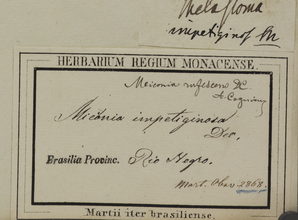 Melastoma
impetiginos
HERBARIUM REGIUM MONACENSE
Miconia rufescens DC
A Cogniaux
Miconia impetiginosa
Dec.
Brasilia Provinc. Rio Negro.
Mart. Obs. 2868.
Martii iter brasiliense.